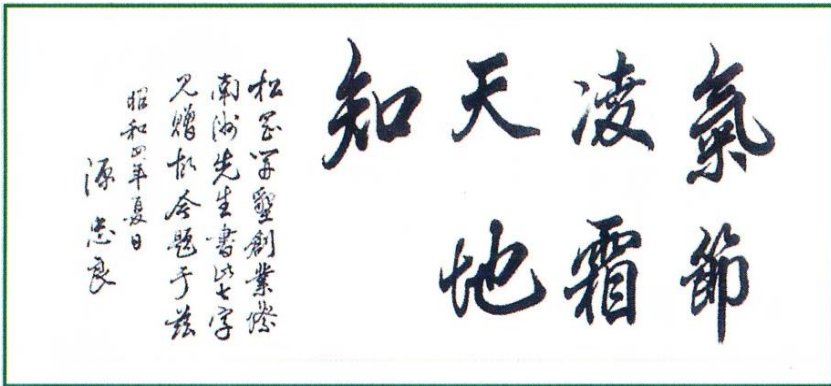 氣節
凌霜
天地
知
松岡開墾創業際
南洲先生書此七字
見贈故今題于茲
昭和四年夏日
源忠良